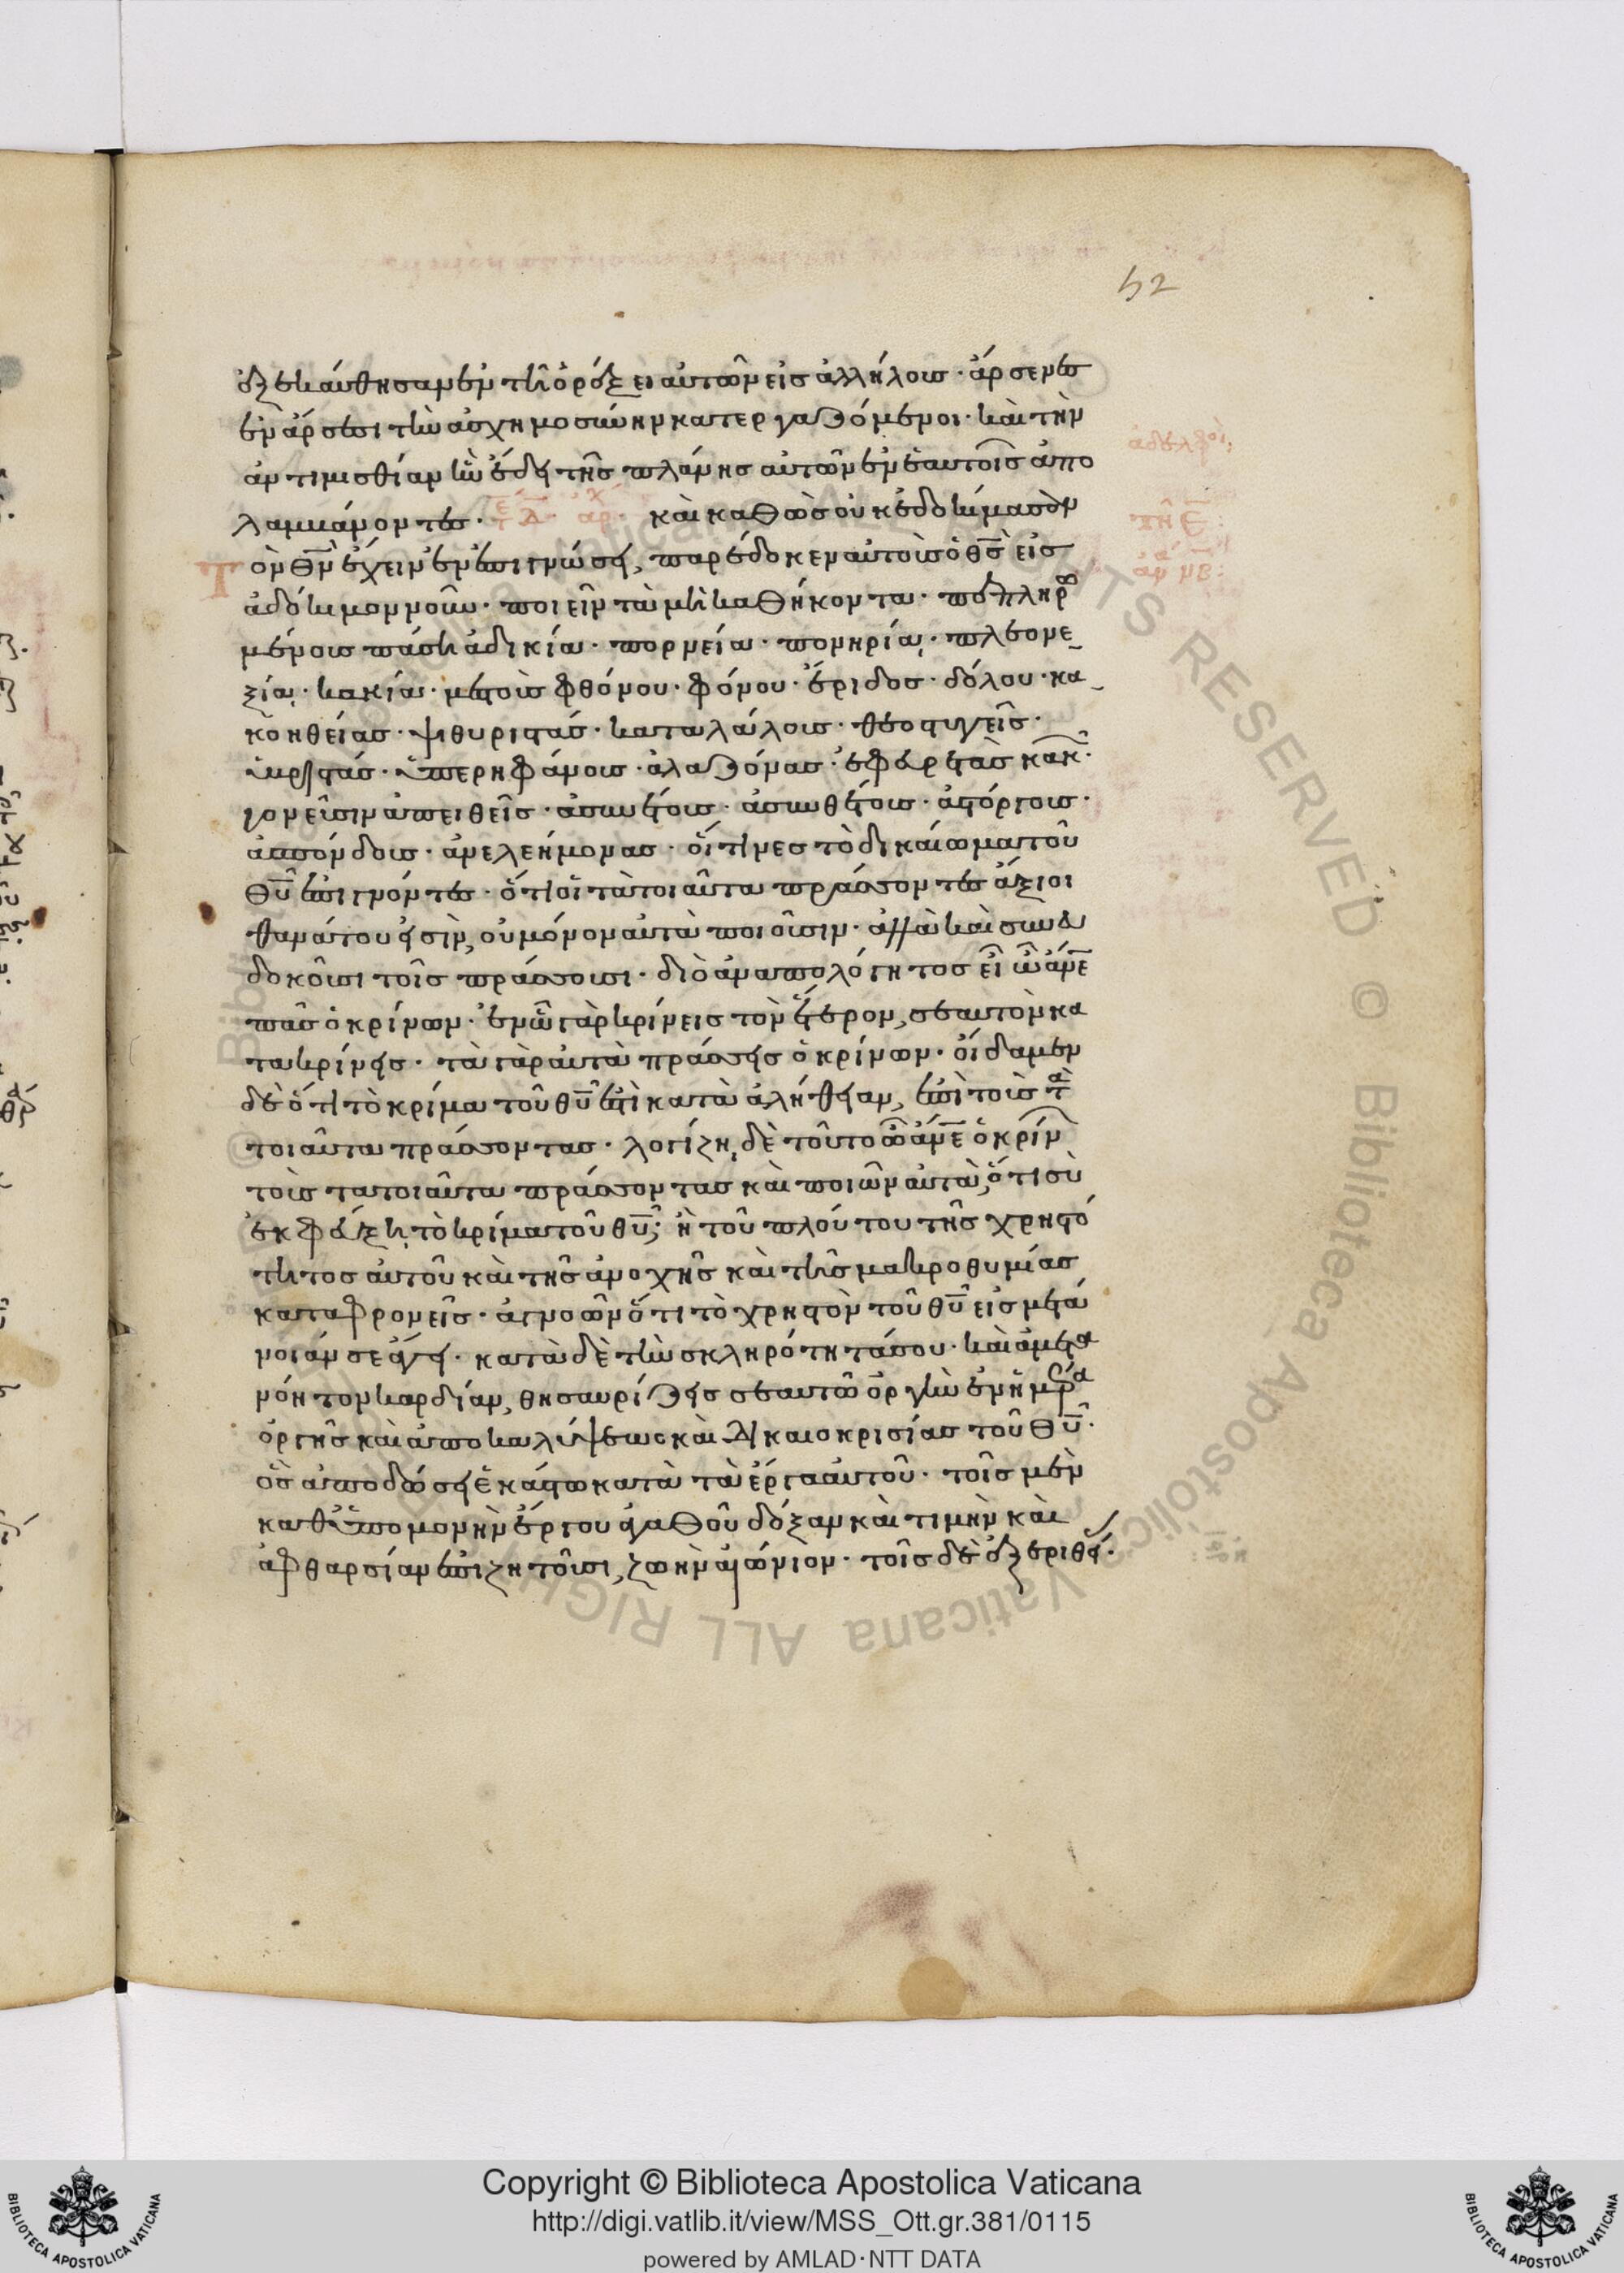 52
ἐξεκαύθησαν ἐν τῆ ὀρέξει αὐτῶν εἰς ἀλλήλους· ἄρσενες
ἐν ἄρσεσι τὴν ἀσχημοσύνην κατεργαζόμενοι· καὶ τὴν
ἀντιμισθίαν ἣν ἔδει τῆς πλάνης αὐτῶν ἐν ἑαυτοῖς ἀπο
λαμβάνοντες· καὶ καθὼς οὐκ ἐδοκίμασὸν
τὸν θν ἔχειν ἐν ἐπιγνώσει, παρέδοκεν αὐτοὺς ὁ θς εἰς
ἀδόκιμον νοῦν· ποιεῖν τὰ μὴ καθήκοντα· πεπληρω
μένους πάση ἀδικία· πορνεία· πονηρία· πλεονε
ξία· κακία· μεστοὺς φθόνου· φόνου· ἔριδος· δόλου· κα
κοηθείας· ψιθυριστάς· καταλάλους· θεοστυγεῖς·
ὑβριστάς· ὑπερηφάνους· ἀλαζόνας· ἐφευρετὰς κακ·
γονεῦσιν ἀπειθεῖς· ἀσυνέτους· ἀσυνθέτους· ἀστόργους·
ἀσπόνδους· ἀνελεήμονας· οἵτινες τὸ δικαίωμα τοῦ
θυ ἐπιγνόντες· ὅτι οἱ τὰ τοιαῦτα πράσσοντες ἄξιοι
θανάτου εἰσὶν, οὐ μόνον αὐτὰ ποιοῦσιν· ἀλλὰ καὶ συνευ
δοκοῦσι τοῖς πράσσουσι· διὸ ἀναπολόγητος εἶ ὦ ἄνε
πᾶς ὁ κρίνων· ἐν ᾧ γὰρ κρίνεις τὸν ἕτερον, σεαυτὸν κα
τακρίνεις· τὰ γὰρ αὐτὰ πράσσεις ὁ κρίνων· οἴδαμεν
δὲ ὅτι τὸ κρίμα τοῦ θυ ἐστὶ κατὰ ἀλήθειαν, ἐπὶ τοὺς τὰ
τοιαῦτα πράσσοντας· λογίζη δὲ τοῦτο ὦ ἄνε ὁ κρίν
τοὺς τα τοιαῦτα πράσσοντας καὶ ποιῶν αὐτὰ, ὅτι σὺ
ἐκφεύξη τὸ κρίμα τοῦ θυ; ἢ τοῦ πλούτου τῆς χρηστό
τητος αὐτοῦ καὶ τῆς ἀνοχῆς καὶ τῆς μακροθυμίας
καταφρονεῖς· ἀγνοῶν ὅτι τὸ χρηστὸν τοῦ θυ εἰς μετά
νοιάν σε ἄγει· κατὰ δὲ τὴν σκληρότητά σου· καὶ ἀμετα
νόητον καρδίαν, θησαυρίζεις σεαυτῶ ὀργὴν ἐν ἡμέρα
ὀργῆς καὶ ἀποκαλύψεως καὶ δικαιοκρισίας τοῦ θυ·
ὃς ἀποδώσει ἑκάστω κατὰ τὰ ἔργα αὐτοῦ· τοῖς μὲν
καθ' ὑπομονὴν ἔργου ἀγαθοῦ δόξαν καὶ τιμὴν καὶ
ἀφθαρσίαν ἐπιζητοῦσι, ζωὴν αἰώνιον· τοῖς δὲ ἐξ ἐριθεί·
ἀδελφοί·
Copyright © Biblioteca Apostolica Vaticana
http://digi.vatlib.it/view/MSS_Ott.gr.381/0115
powered by AMLAD·NTT DATA
BIBLIOTECA APOSTOLICA VATICANA
BIBLIOTECA APOSTOLICA VATICANA
© Biblioteca Apostolica Vaticana ALL RIGHTS RESERVED